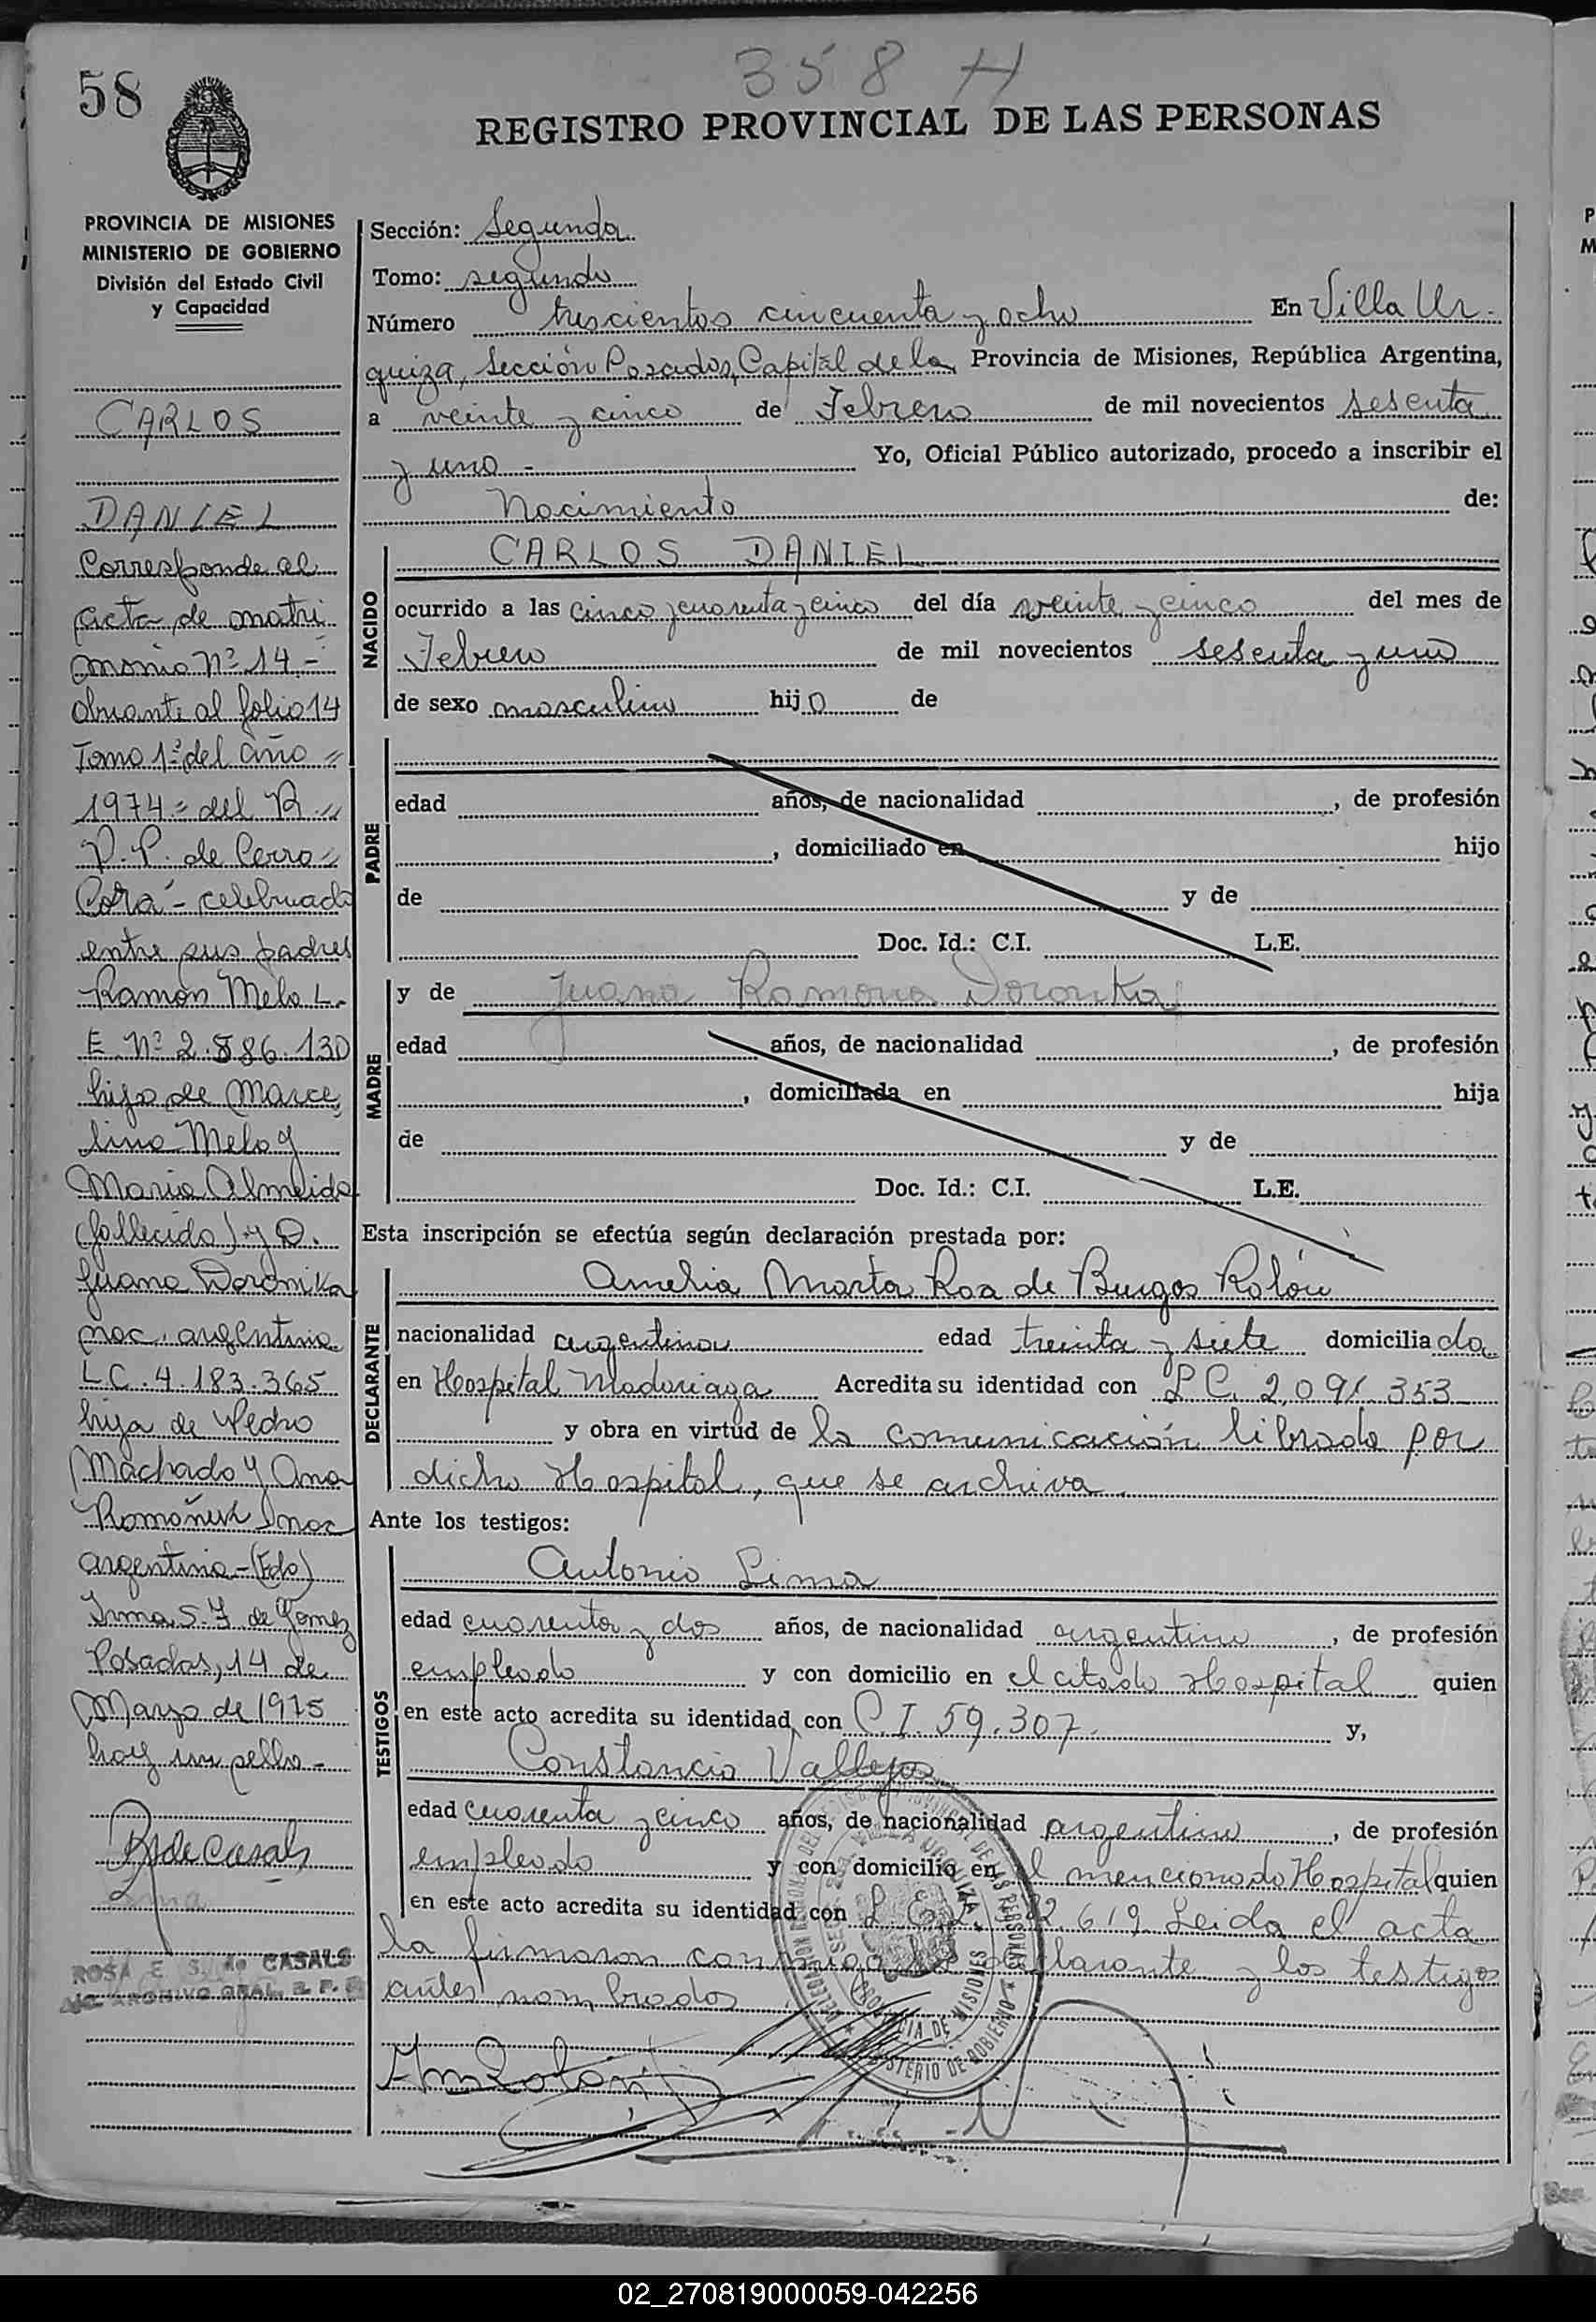 58
358 H
REGISTRO PROVINCIAL DE LAS PERSONAS
PROVINCIA DE MISIONES
MINISTERIO DE GOBIERNO
División del Estado Civil
y Capacidad
CARLOS
DANIEL
Corresponde al
acta de matri
monio Nº 14 -
obrante al folio 14
Tomo 1º del año =
1974 = del R. =
P. P. de Cerro =
Corá - celebrado
entre sus padres
Ramón Melo L.
E Nº 2.886.130
hijo de Marce
lino Melo y
Maria Almeida
(fallecida) y D.
Juana Doronika
nac. argentina
L.C. 4.183.365
hija de Pedro
Machado y Ana
Romañuk nac
argentina - (Fdo)
Irma S. F. de Gomez
Posadas, 14 de
Marzo de 1975
hay un sello -
R S de Casals
ROSA E. S. de CASALS
Sección: Segunda
Tomo: segundo
Número trescientos cincuenta y ocho En Villa Ur-
quiza, Sección Posadas, Capital de la Provincia de Misiones, República Argentina,
a veinte y cinco de Febrero de mil novecientos sesenta
y uno - Yo, Oficial Público autorizado, procedo a inscribir el
Nacimiento de:
NACIDO
CARLOS DANIEL
ocurrido a las cinco y cuarenta y cinco del día veinte y cinco del mes de
Febrero de mil novecientos sesenta y uno
de sexo masculino hijo de
PADRE
edad años, de nacionalidad , de profesión
, domiciliado en hijo
de y de
Doc. Id.: C.I. L.E.
MADRE
y de Juana Ramona Doronka
edad años, de nacionalidad , de profesión
, domiciliada en hija
de y de
Doc. Id.: C.I. L.E.
Esta inscripción se efectúa según declaración prestada por:
DECLARANTE
Amelia Marta Roa de Burgos Rolón
nacionalidad argentina edad treinta y siete domiciliada
en Hospital Madariaga Acredita su identidad con L C. 2.091.353
y obra en virtud de la comunicación librada por
dicho Hospital, que se archiva.
Ante los testigos:
TESTIGOS
Antonio Lima
edad cuarenta y dos años, de nacionalidad argentino, de profesión
empleado y con domicilio en el citado Hospital quien
en este acto acredita su identidad con C. I. 59.307. y,
Constancio Vallejos
edad cuarenta y cinco años, de nacionalidad argentino, de profesión
empleado y con domicilio en el mencionado Hospital quien
en este acto acredita su identidad con L. E. 2.619 Leida el acta
la firmaron conmigo la declarante y los testigos
antes nombrados
AmRolon
02_270819000059-042256